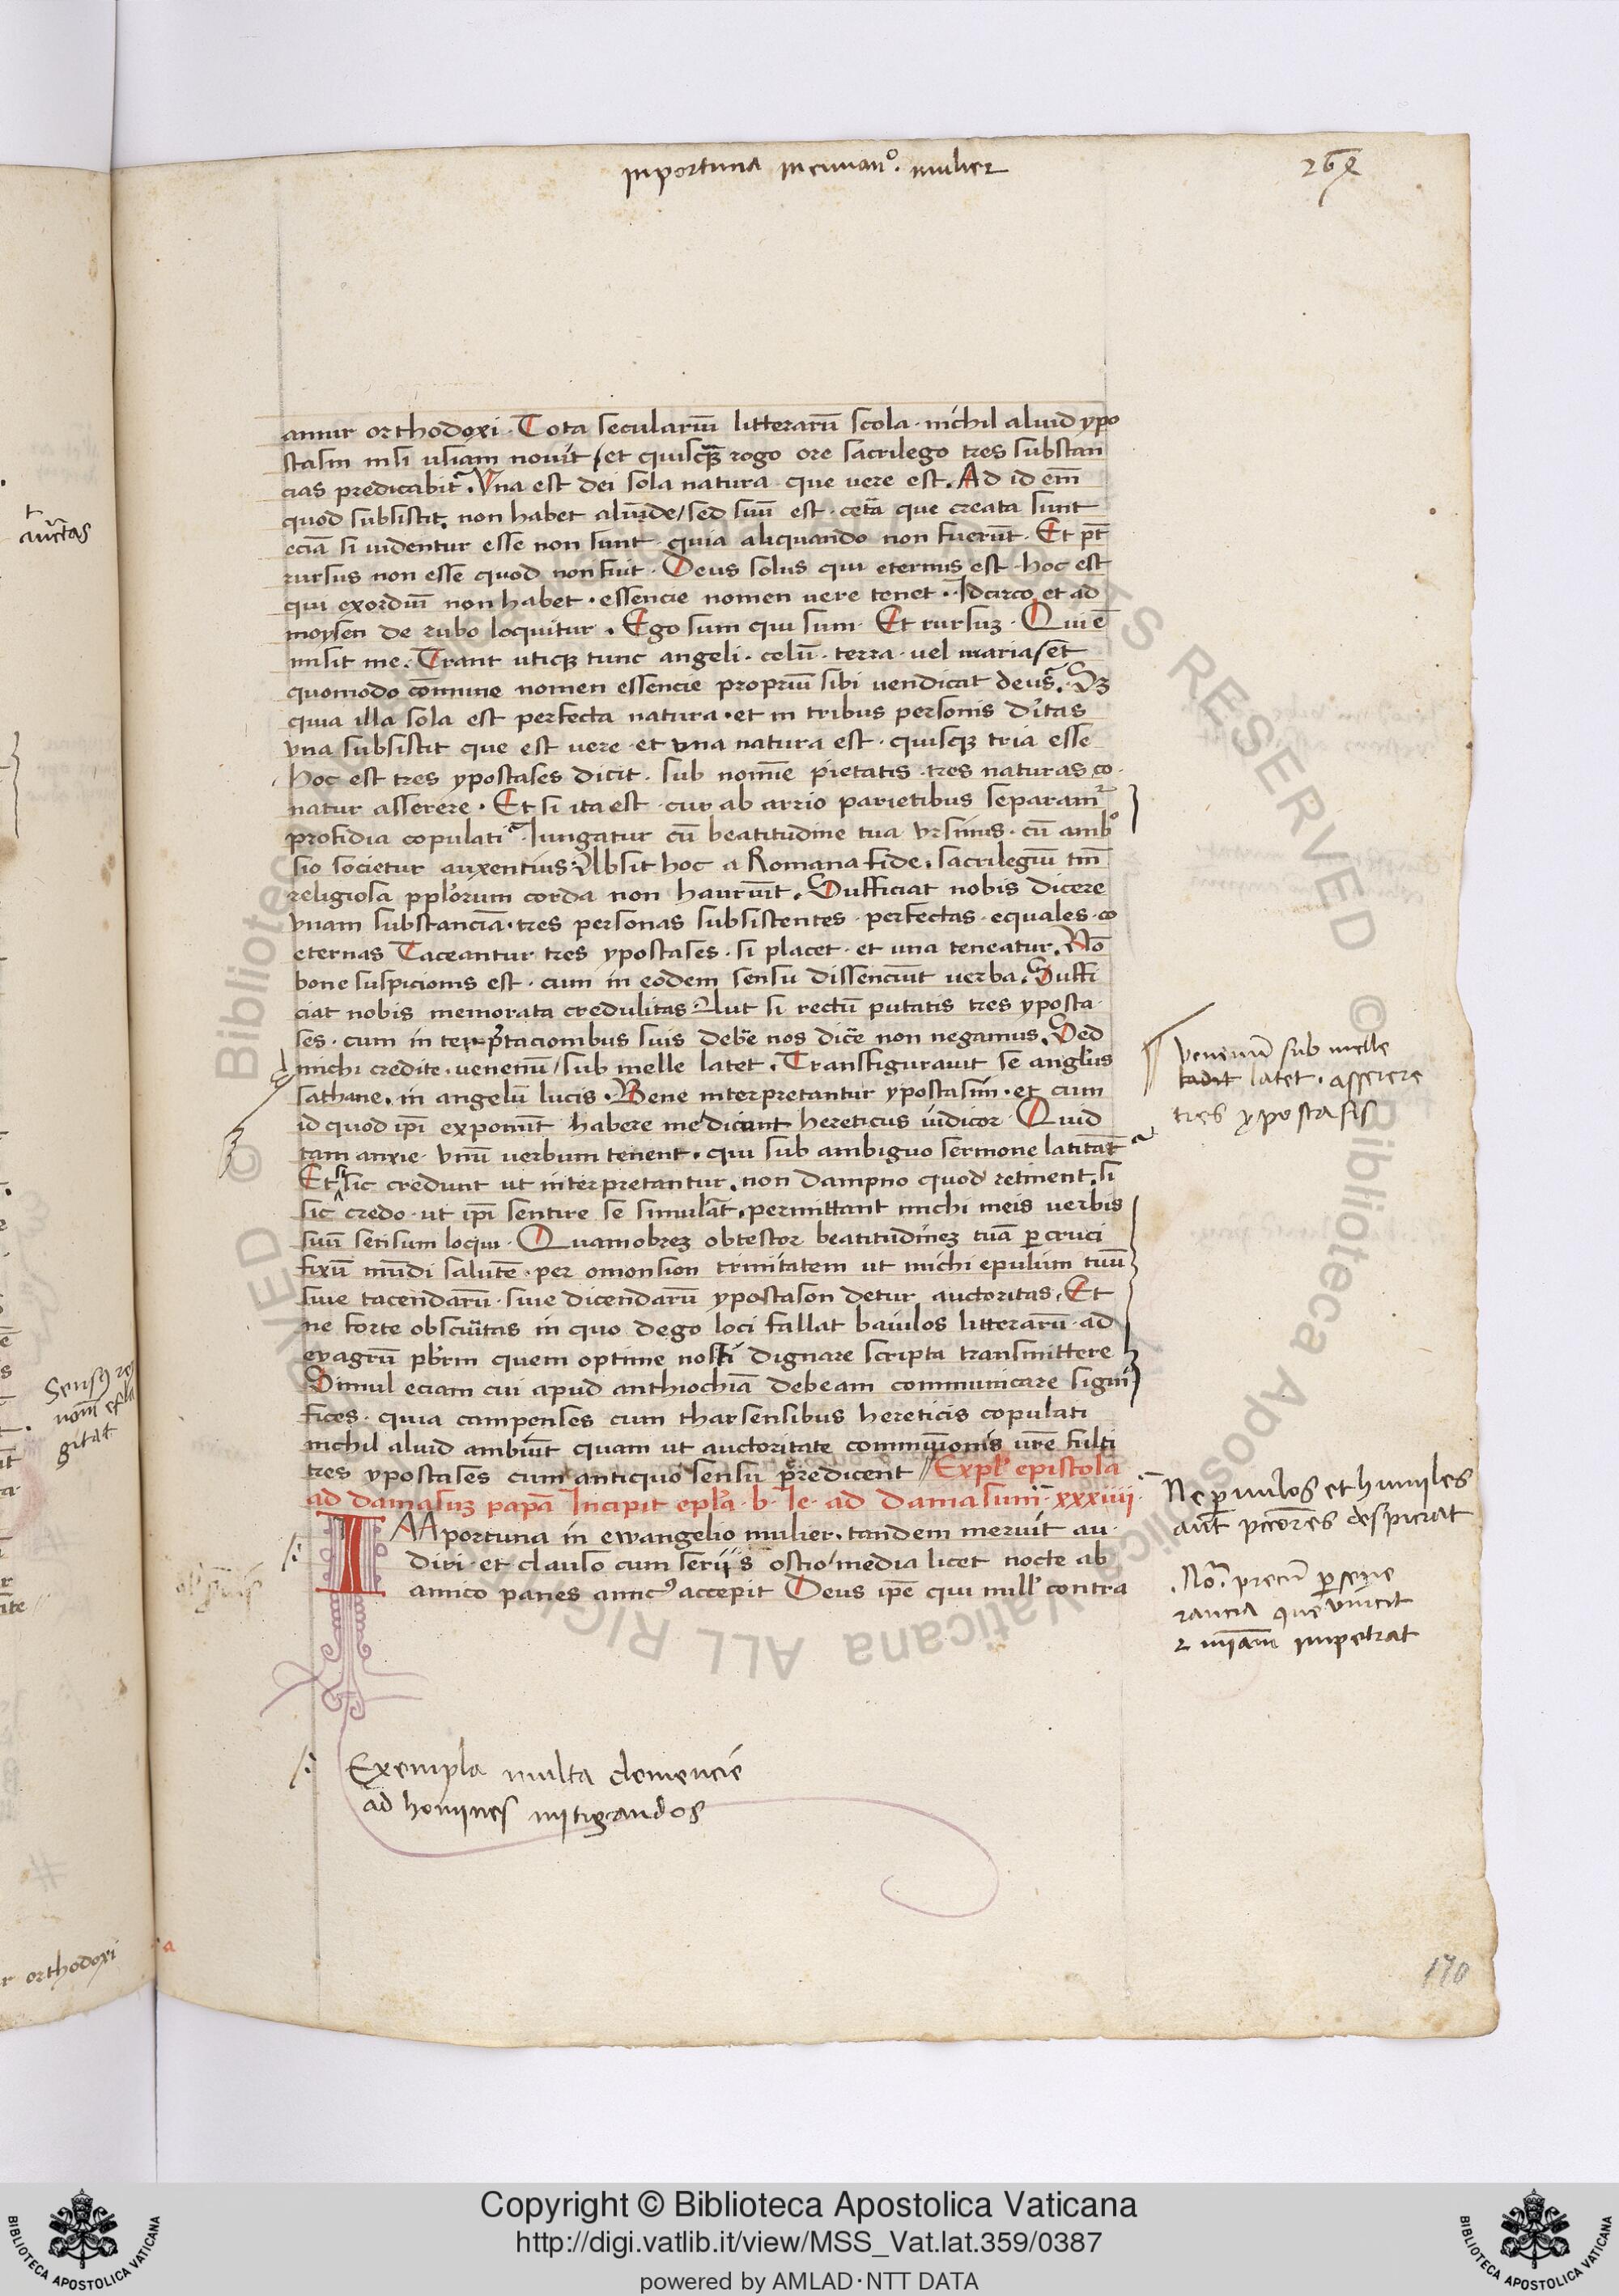 inportuna in euuan°. mulier
amur orthodoxi · Tota seculariũ litterarũ scola · nichil aliud ypo
stasin nisi usiam novit / et quisq̃ rogo ore sacrilego tres substan
cias predicabit᷑. Vna est dei sola natura que vere est. Ad id em̃
quod subsistit. non habet aliũde / sed suũ est · cetã que creata sunt
eciã si videntur esse non sunt · quia aliquando non fuerũt · Et pt̃
rursus non esse quod non fuit · Deus solus qui eternus est · hoc est
qui exordiũ non habet · essencie nomen vere tenet · Idcirco et ad
moysen de rubo loquitur. Ego sum qui sum · Et rursuʒ · Qui ẽ
misit me. Erant utiqʒ tunc angeli · celũ · terra · vel maria / et̃
quomodo cõmune nomen essencie propriũ sibi vendicat deus᷑. Sʒ
quia illa sola est perfecta natura · et in tribus personis dĩtas
vna subsistit que est vere et vna natura est · quisqʒ tria esse
hoc est tres ypostases dicit · sub nomĩe pietatis · tres naturas co
natur asserere · Et si ita est · cur ab arrio parietibus separam᷑
profidia copulati᷑ Iungatur cũ beatitudine tua vrsinus · cũ amb°
sio societur auxentius᷑ Absit hoc a Romana fide. sacrilegiũ tm̃
religiosa pplorum corda non hauriũt. Sufficiat nobis dicere
vnam substanciã · tres personas subsistentes · perfectas · equales · co
eternas Taceantur tres ypostases · si placet · et una teneatur. Nõ
bone suspicionis est · cum in eodem sensu dissenciũt verba. Suffi
ciat nobis memorata credulitas · Aut si rectũ putatis tres yposta
ses · cum in terp̃tacionibus suis debẽ nos dicẽ non negamus. Sed
michi credite · venenũ / sub melle latet. Transfiguravit se angl̃us
sathane. in angelũ lucis. Bene interpretantur ypostasim · et cum
id quod ip̃i exponũt habere me dicant hereticus iudicor · Quid
tam anxie · vnũ verbum tenent · qui sub ambiguo sermone latitãt᷑
Et si sic credunt ut interpretantur. non dampno quod retinent. si
sic credo · ut ip̃i sentire se simulãt. permittant michi meis verbis
suũ sensum loqui · Quamobreʒ obtestor beatitudineʒ tuã p̱ cruci
fixũ mũdi salutẽ · per omonsion trinitatem ut michi epulum tuũ
sive tacendarũ · sive dicendarũ ypostason detur auctoritas. Et
ne forte obscuĩtas in quo dego loci fallat baiulos litterarũ · ad
evagriũ pb̃rm quem optime nosti dignare scripta transmittere
Simul eciam cui apud anthiochiã debeam communicare signi
fices · quia campenses cum tharsensibus hereticis copulati
nichil aliud ambiũt quam ut auctoritate communionis vr̃e fulti
tres ypostases cum antiquo sensu predicent // Expl̃ epistola
ad damasuʒ papã Incipit epl̃a · b · Ie · ad Damasum · xxxiiii
IMportuna in ewangelio mulier. tandem meruit au
diri · et clauso cum seruis ostio / media licet nocte ab
amico panes amicꝰ accepit Deus ip̃e qui null̃ contra
Venenũ sub melle
tadit latet · asserere
tres ypostasis
Ne p̱vulos et humiles
aut pcc̃ores despiciat
Nõ. precũ p̱seve
rancia que vincit
⁊ miãm impetrat
Exempla multa clemencie
ad homines mitigandos
auct̃as
gitat
r orthodoxi
170
Copyright © Biblioteca Apostolica Vaticana
http://digi.vatlib.it/view/MSS_Vat.lat.359/0387
powered by AMLAD·NTT DATA
BIBLIOTECA APOSTOLICA VATICANA
BIBLIOTECA APOSTOLICA VATICANA